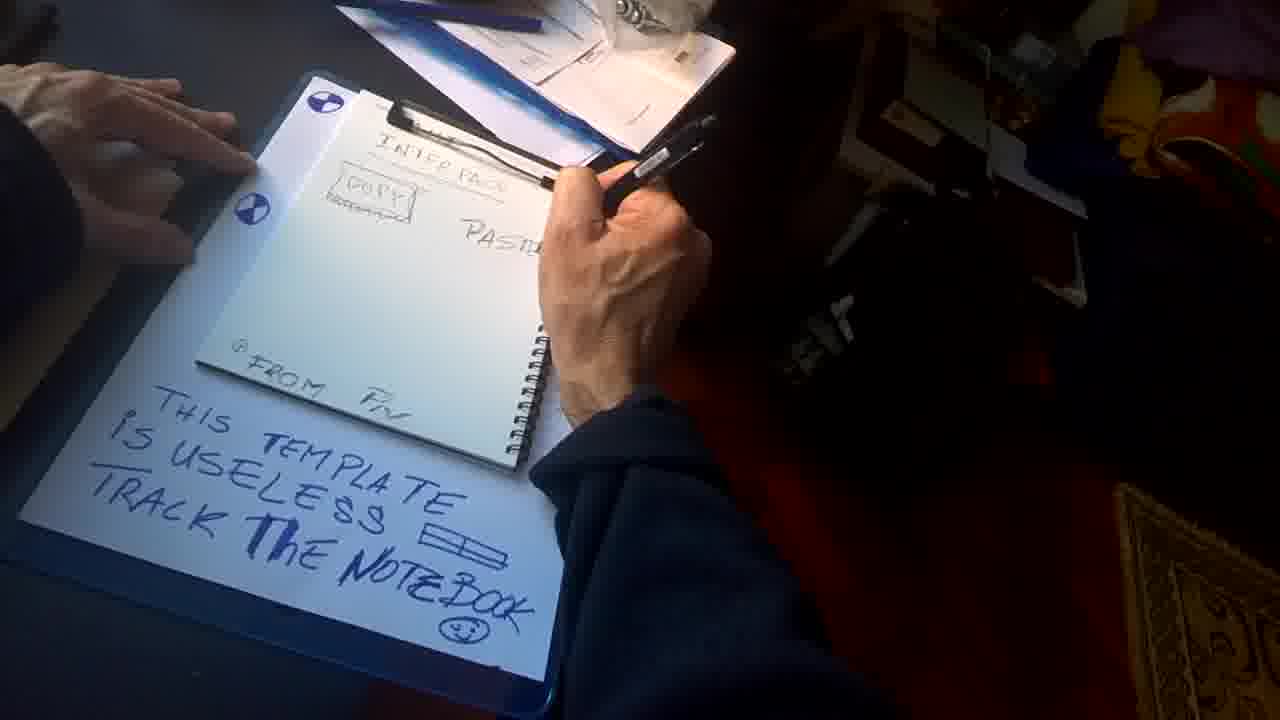 INTERFACE
COPY
PASTE
FROM
THIS TEMPLATE
iS USELESS
TRACK THE NOTEBOOK